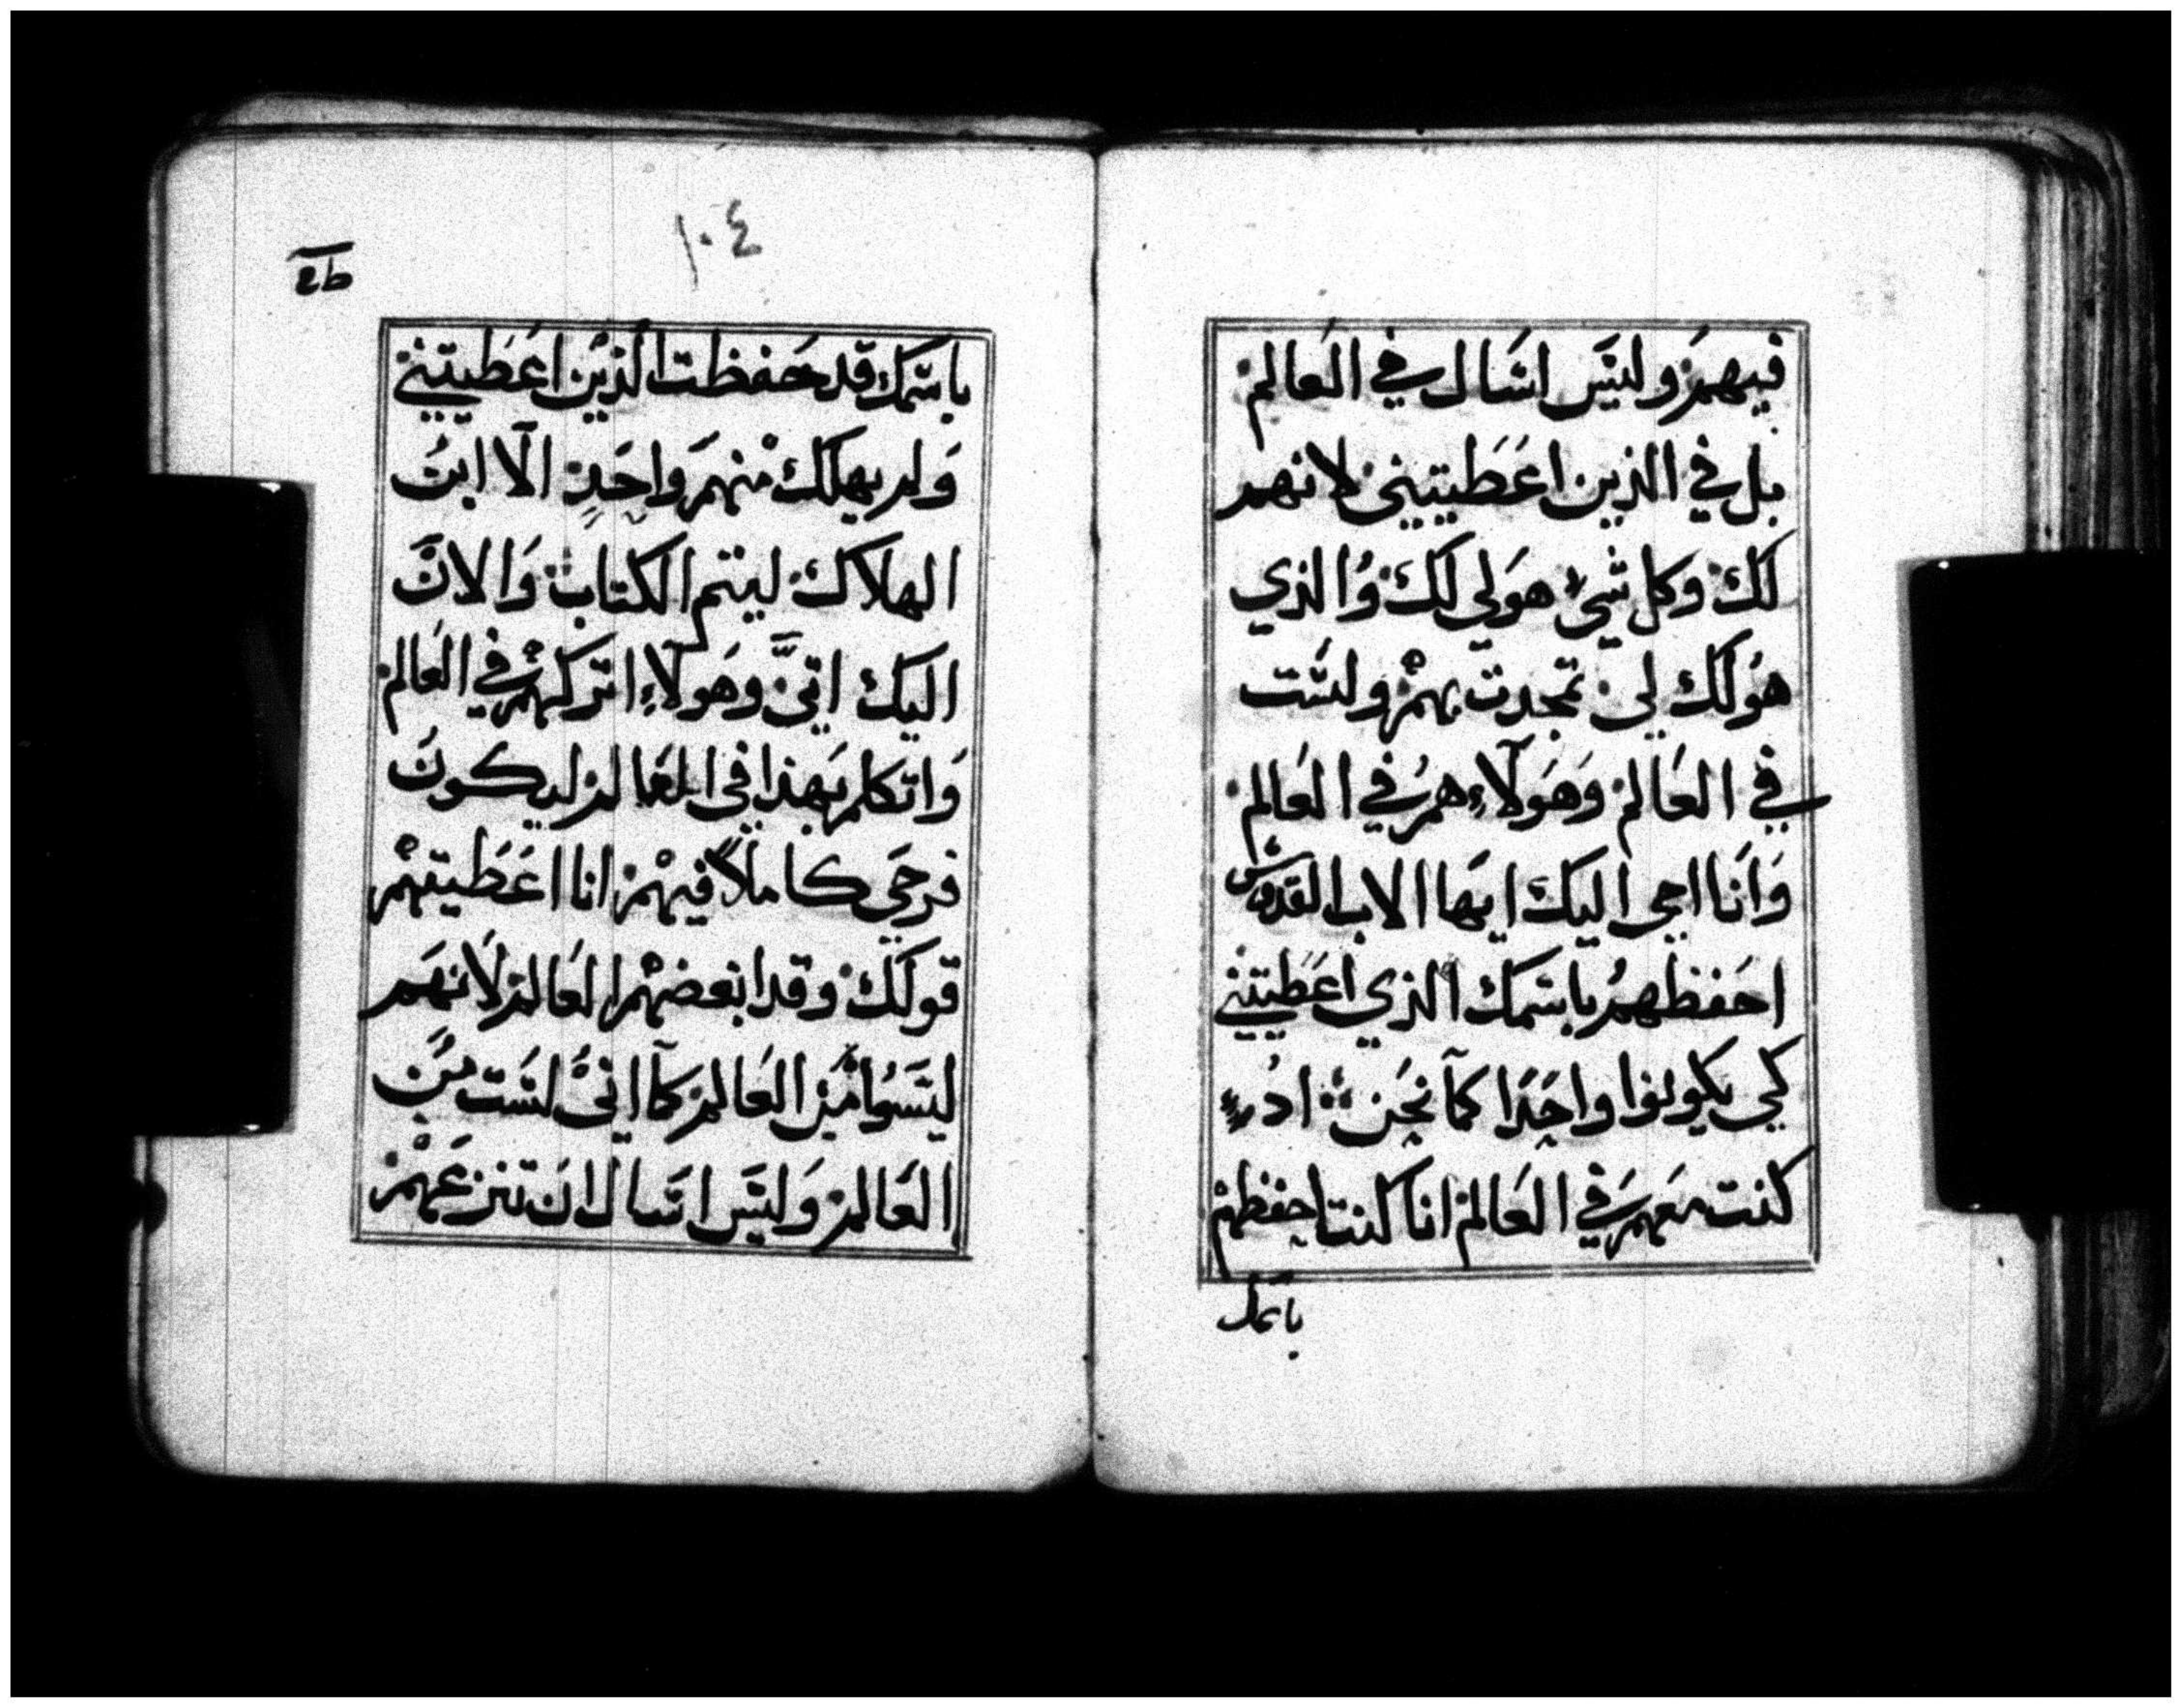 فيهم وليس اسال في العالم
بل في الذين اعطيتيني لانهم
لك وكل شيء هو لي لك والذي
هو لك لي تمجدت بهم ولست
في العالم وهولاء هم في العالم
وانا اجي اليك ايها الاب القدوس
احفظهم باسمك الذي اعطيتني
كي يكونوا واحدا كما نحن اذ
كنت معهم في العالم انا كنت احفظهم
باسمك
١٠٤
باسمك قد حفظت الذين اعطيتني
ولم يهلك منهم واحد الا ابن
الهلاك ليتم الكتاب والان
اليك اتي وهولاء اتركهم في العالم
واتكلم بهذا في العالم ليكون
فرحي كاملا فيهم انا اعطيتهم
قولك وقد ابغضهم العالم لانهم
ليسوا من العالم كما اني لست من
العالم وليس اسال ان تنزعهم